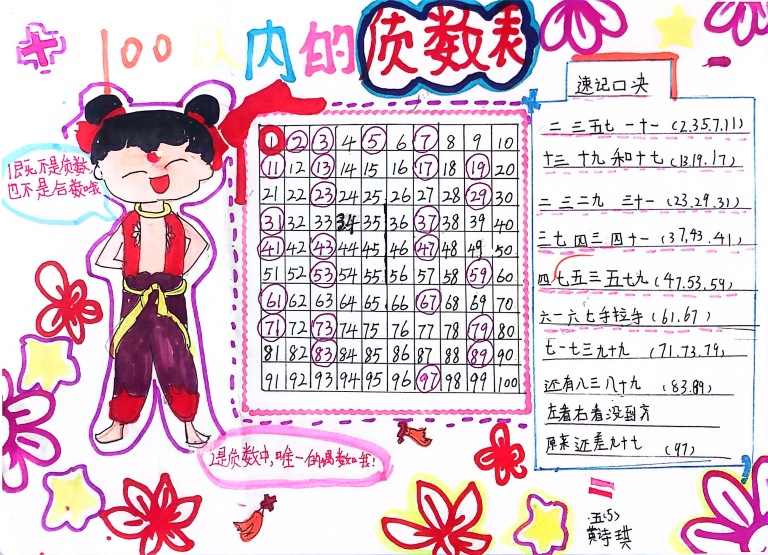 100以内的质数表
1既不是质数
也不是合数哦
1 2 3 4 5 6 7 8 9 10
11 12 13 14 15 16 17 18 19 20
21 22 23 24 25 26 27 28 29 30
31 32 33 34 35 36 37 38 39 40
41 42 43 44 45 46 47 48 49 50
51 52 53 54 55 56 57 58 59 60
61 62 63 64 65 66 67 68 69 70
71 72 73 74 75 76 77 78 79 80
81 82 83 84 85 86 87 88 89 90
91 92 93 94 95 96 97 98 99 100
2是质数中,唯一的偶数如我!
速记口决
二 三五七 一十一 (2.3.5.7.11)
十三 十九 和十七 (13.19.17)
二 三二九 三十一 (23.29.31)
三七 四三 四十一 (37.43.41)
四七五三 五七九 (47.53.59)
六一六七手拉手 (61.67)
七一七三九十九 (71.73.79)
还有八三八十九 (83.89)
左看右看没到齐
原来还差九十七 (97)
五(5)
黄诗琪